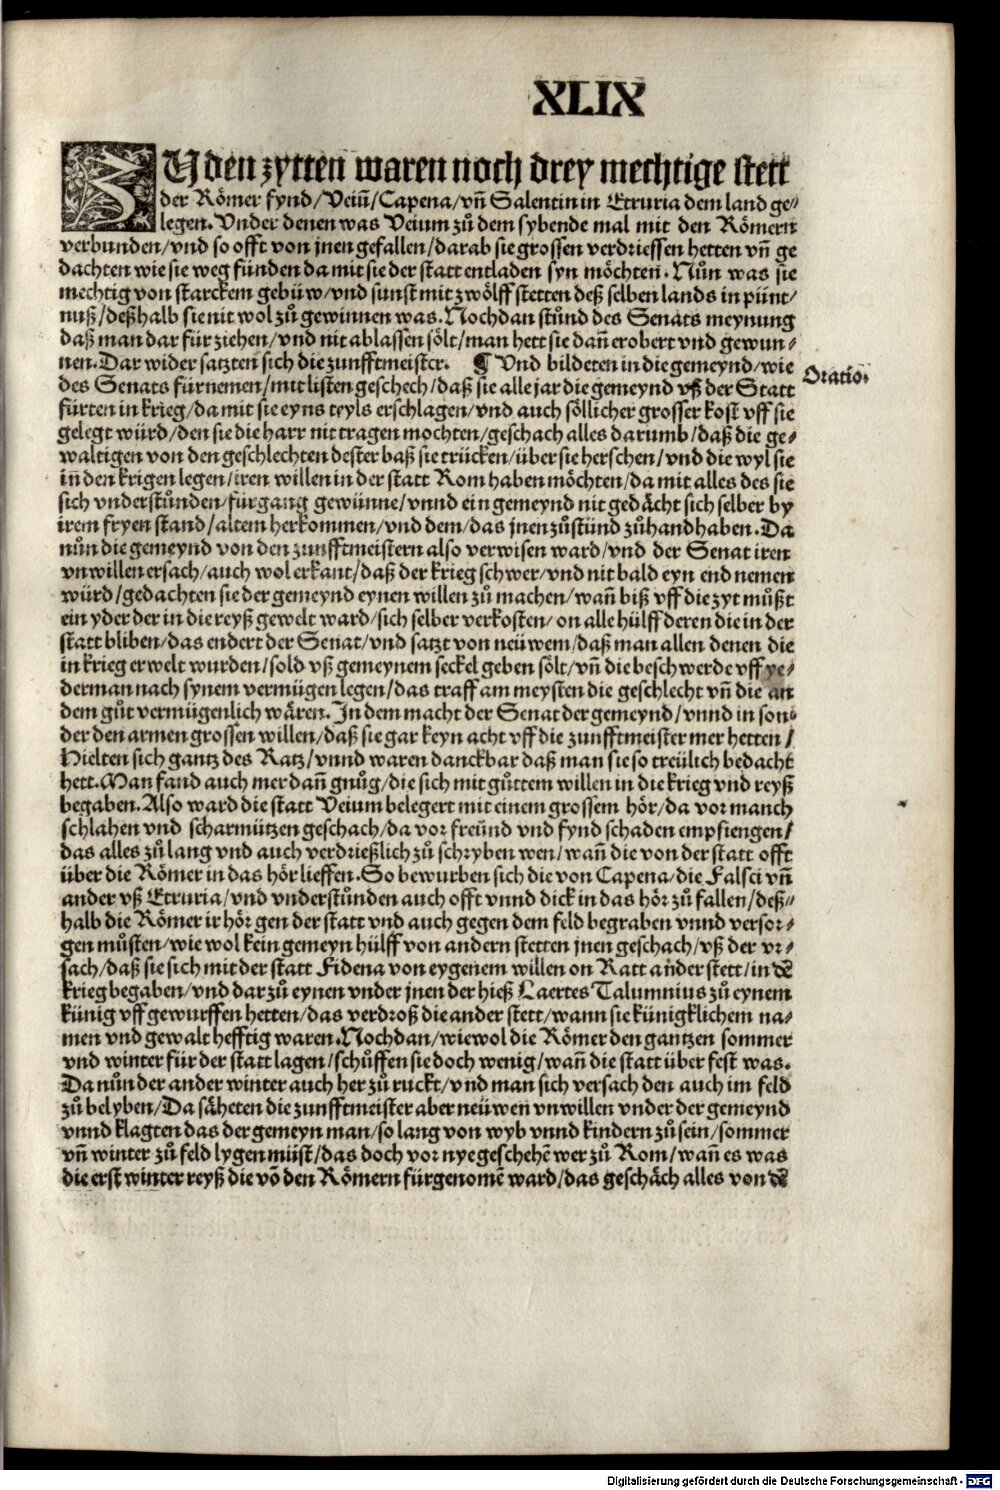 XLIX
ZU den zytten waren noch drey mechtige stett
der Römer fynd/Veiũ/Capena/vñ Salentin in Etruria dem land ge⸗
legen. Vnder denen was Veium zů dem sybende mal mit den Römern
verbunden/vnd so offt von jnen gefallen/darab sie grossen verdriessen hetten vñ ge
dachten wie sie weg fünden da mit sie der statt entladen syn möchten. Nůn was sie
mechtig von starckem gebüw/vnd sunst mit zwölff stetten deß selben lands in pünt/
nuß/deßhalb sie nit wol zů gewinnen was. Nochdan stůnd des Senats meynung
daß man dar für ziehen/vnd nit ablassen sölt/man hett sie dañ erobert vnd gewun⸗
nen. Dar wider satzten sich die zunfftmeister. ¶ Vnd bildeten in die gemeynd/wie
Oratio.
des Senats fürnemen/mit listen geschech/daß sie alle jar die gemeynd vß der Statt
fürten in krieg/da mit sie eyns teyls erschlagen/vnd auch söllicher grosser kost vff sie
gelegt würd/den sie die harr nit tragen mochten/geschach alles darumb/daß die ge⸗
waltigen von den geschlechten dester baß sie trücken/über sie herschen/vnd die wyl sie
iñ den krigen legen/iren willen in der statt Rom haben möchten/da mit alles des sie
sich vnderstůnden/fürgang gewünne/vnnd ein gemeynd nit gedächt sich selber by
irem fryen stand/altem herkommen/vnd dem/das jnen zůstünd zůhandhaben. Da
nůn die gemeynd von den zunfftmeistern also verwisen ward/vnd der Senat iren
vnwillen ersach/auch wol erkant/daß der krieg schwer/vnd nit bald eyn end nemen
würd/gedachten sie der gemeynd eynen willen zů machen/wañ biß vff die zyt můßt
ein yder der in die reyß gewelt ward/sich selber verkosten/on alle hülff deren die in der
statt bliben/das endert der Senat/vnd satzt von neüwem/daß man allen denen die
in krieg erwelt wurden/sold vß gemeynem seckel geben sölt/vñ die beschwerde vff ye⸗
derman nach synem vermügen legen/das traff am meysten die geschlecht vñ die an
dem gůt vermügenlich wären. In dem macht der Senat der gemeynd/vnnd in son⸗
der den armen grossen willen/daß sie gar keyn acht vff die zunfftmeister mer hetten/
Hielten sich gantz des Ratz/vnnd waren danckbar daß man sie so treülich bedacht
hett. Man fand auch mer dañ gnůg/die sich mit gůttem willen in die krieg vnd reyß
begaben. Also ward die statt Veium belegert mit einem grossem hör/da vor manch
schlahen vnd scharmützen geschach/da vor freünd vnd fynd schaden empfiengen/
das alles zů lang vnd auch verdrießlich zů schryben wen/wañ die von der statt offt
über die Römer in das hör lieffen. So bewurben sich die von Capena/die Falsci vñ
ander vß Etruria/vnd vnderstůnden auch offt vnnd dick in das hör zů fallen/deß⸗
halb die Römer ir hör gen der statt vnd auch gegen dem feld begraben vnnd versor⸗
gen můsten/wie wol kein gemeyn hülff von andern stetten jnen geschach/vß der vr⸗
sach/daß sie sich mit der statt Fidena von eygenem willen on Ratt ander stett/in dē
krieg begaben/vnd dar zů eynen vnder jnen der hieß Laertes Talumnius zů eynem
künig vff gewurffen hetten/das verdroß die ander stett/wann sie künigklichem na⸗
men vnd gewalt hefftig waren. Nochdan/wiewol die Römer den gantzen sommer
vnd winter für der statt lagen/schůffen sie doch wenig/wañ die statt über fest was.
Da nůn der ander winter auch her zů ruckt/vnd man sich versach den auch im feld
zů belyben/Da säheten die zunfftmeister aber neüwen vnwillen vnder der gemeynd
vnnd klagten das der gemeyn man/so lang von wyb vnnd kindern zů sein/sommer
vñ winter zů feld lygen müst/das doch vor nye geschehē wer zů Rom/wañ es was
die erst winter reyß die vō den Römern fürgenomē ward/das geschäch alles von dē
Digitalisierung gefördert durch die Deutsche Forschungsgemeinschaft - DFG